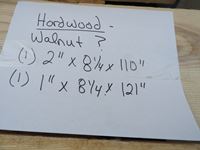 Hardwood -
Walnut ?
(1) 2" x 8 1/4 x 110"
(1) 1" x 8 1/4 x 121"